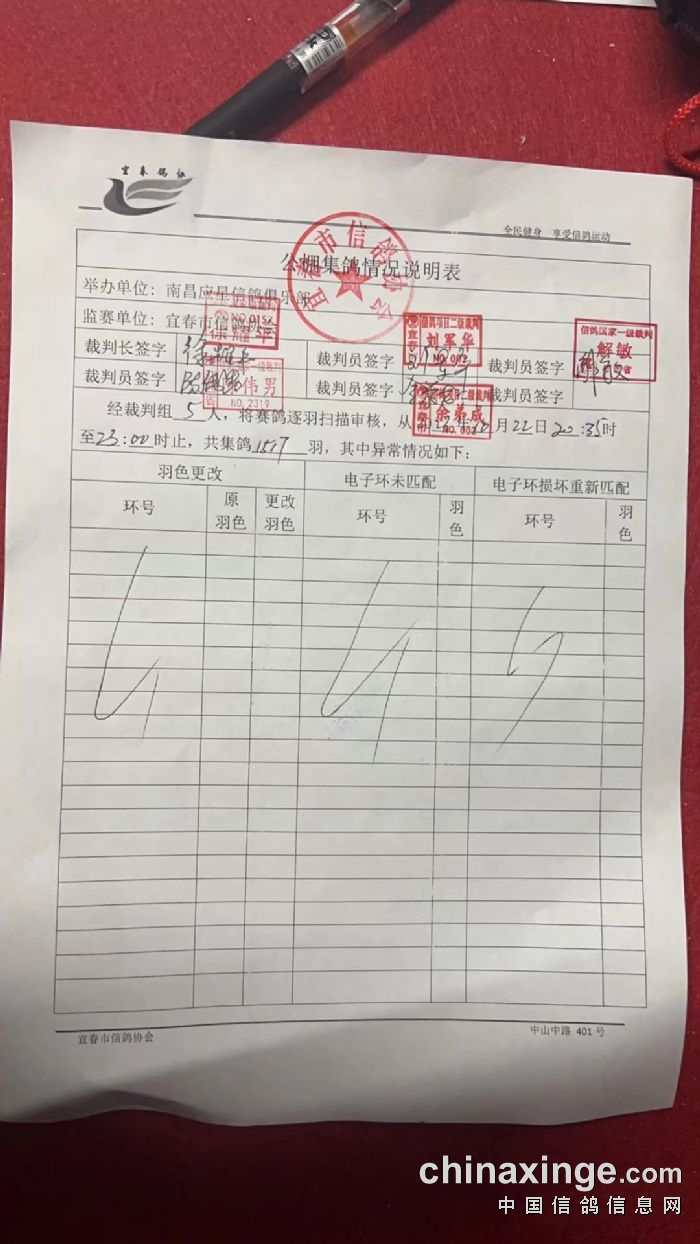 宜春鸽协
全民健身 享受信鸽运动
宜春市信鸽协会
公棚集鸽情况说明表
举办单位：南昌应星信鸽俱乐部
监赛单位：宜春市信鸽协会
裁判长签字 裁判员签字 裁判员签字
裁判员签字 裁判员签字 裁判员签字
信鸽项目二级裁判
刘军华
NO.002
信鸽国家一级裁判
解敏
伟男
NO.2319
余弟成
经裁判组 5 人，将赛鸽逐羽扫描审核，从 年10月22日20:35时
至23:00时止，共集鸽1517羽，其中异常情况如下：
羽色更改 电子环未匹配 电子环损坏重新匹配
环号 原羽色 更改羽色 环号 羽色 环号 羽色
宜春市信鸽协会 中山中路 401 号
chinaxinge.com
中国信鸽信息网